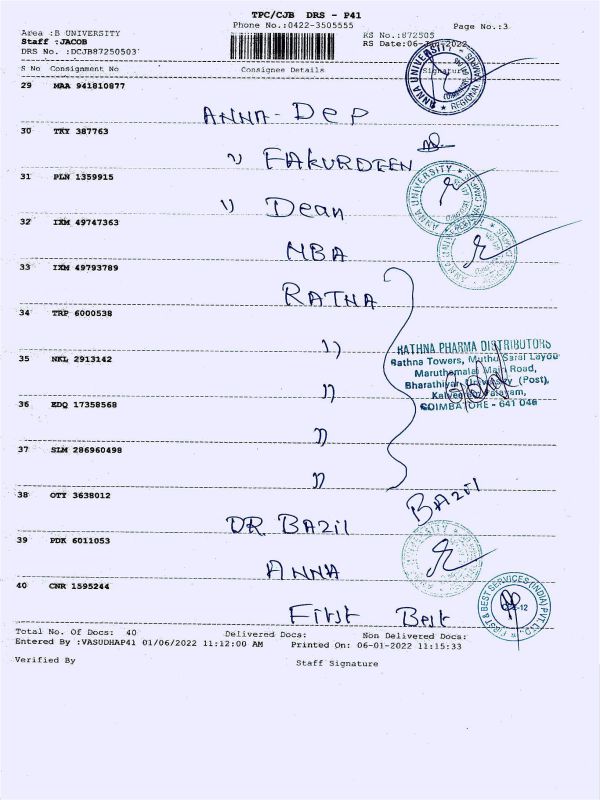 TPC/CJB DRS - P41
Phone No.:0422-3505555
Page No.:3
Area :B UNIVERSITY
Staff :JACOB
DRS No. :DCJB87250503
RS No.:872503
RS Date:06-Jan-2022
S No Consignment No Consignee Details Signature
29 MAA 941810877
ANNA- Dep
30 TKY 387763
" FAKURDEEN
31 PLN 1359915
" Dean
32 IXM 49747363
MBA
33 IXM 49793789
RATNA
34 TRP 6000538
"
35 NKL 2913142
"
36 EDQ 17358568
"
37 SLM 286960498
"
38 OTY 3638012
DR BAZIL
39 PDK 6011053
ANNA
40 CNR 1595244
First Best
ANNA UNIVERSITY
REGIONAL CAMPUS
ANNA UNIVERSITY
RATHNA PHARMA DISTRIBUTORS
Rathna Towers, Muthu Sarai Layou
Maruthamalai Main Road,
Bharathiyar University (Post),
COIMBATORE - 641 046
BAZIL
FIRST & BEST SERVICES (INDIA) PVT LTD
Total No. Of Docs: 40 Delivered Docs: Non Delivered Docs:
Entered By :VASUDHAP41 01/06/2022 11:12:00 AM Printed On: 06-01-2022 11:15:33
Verified By Staff Signature